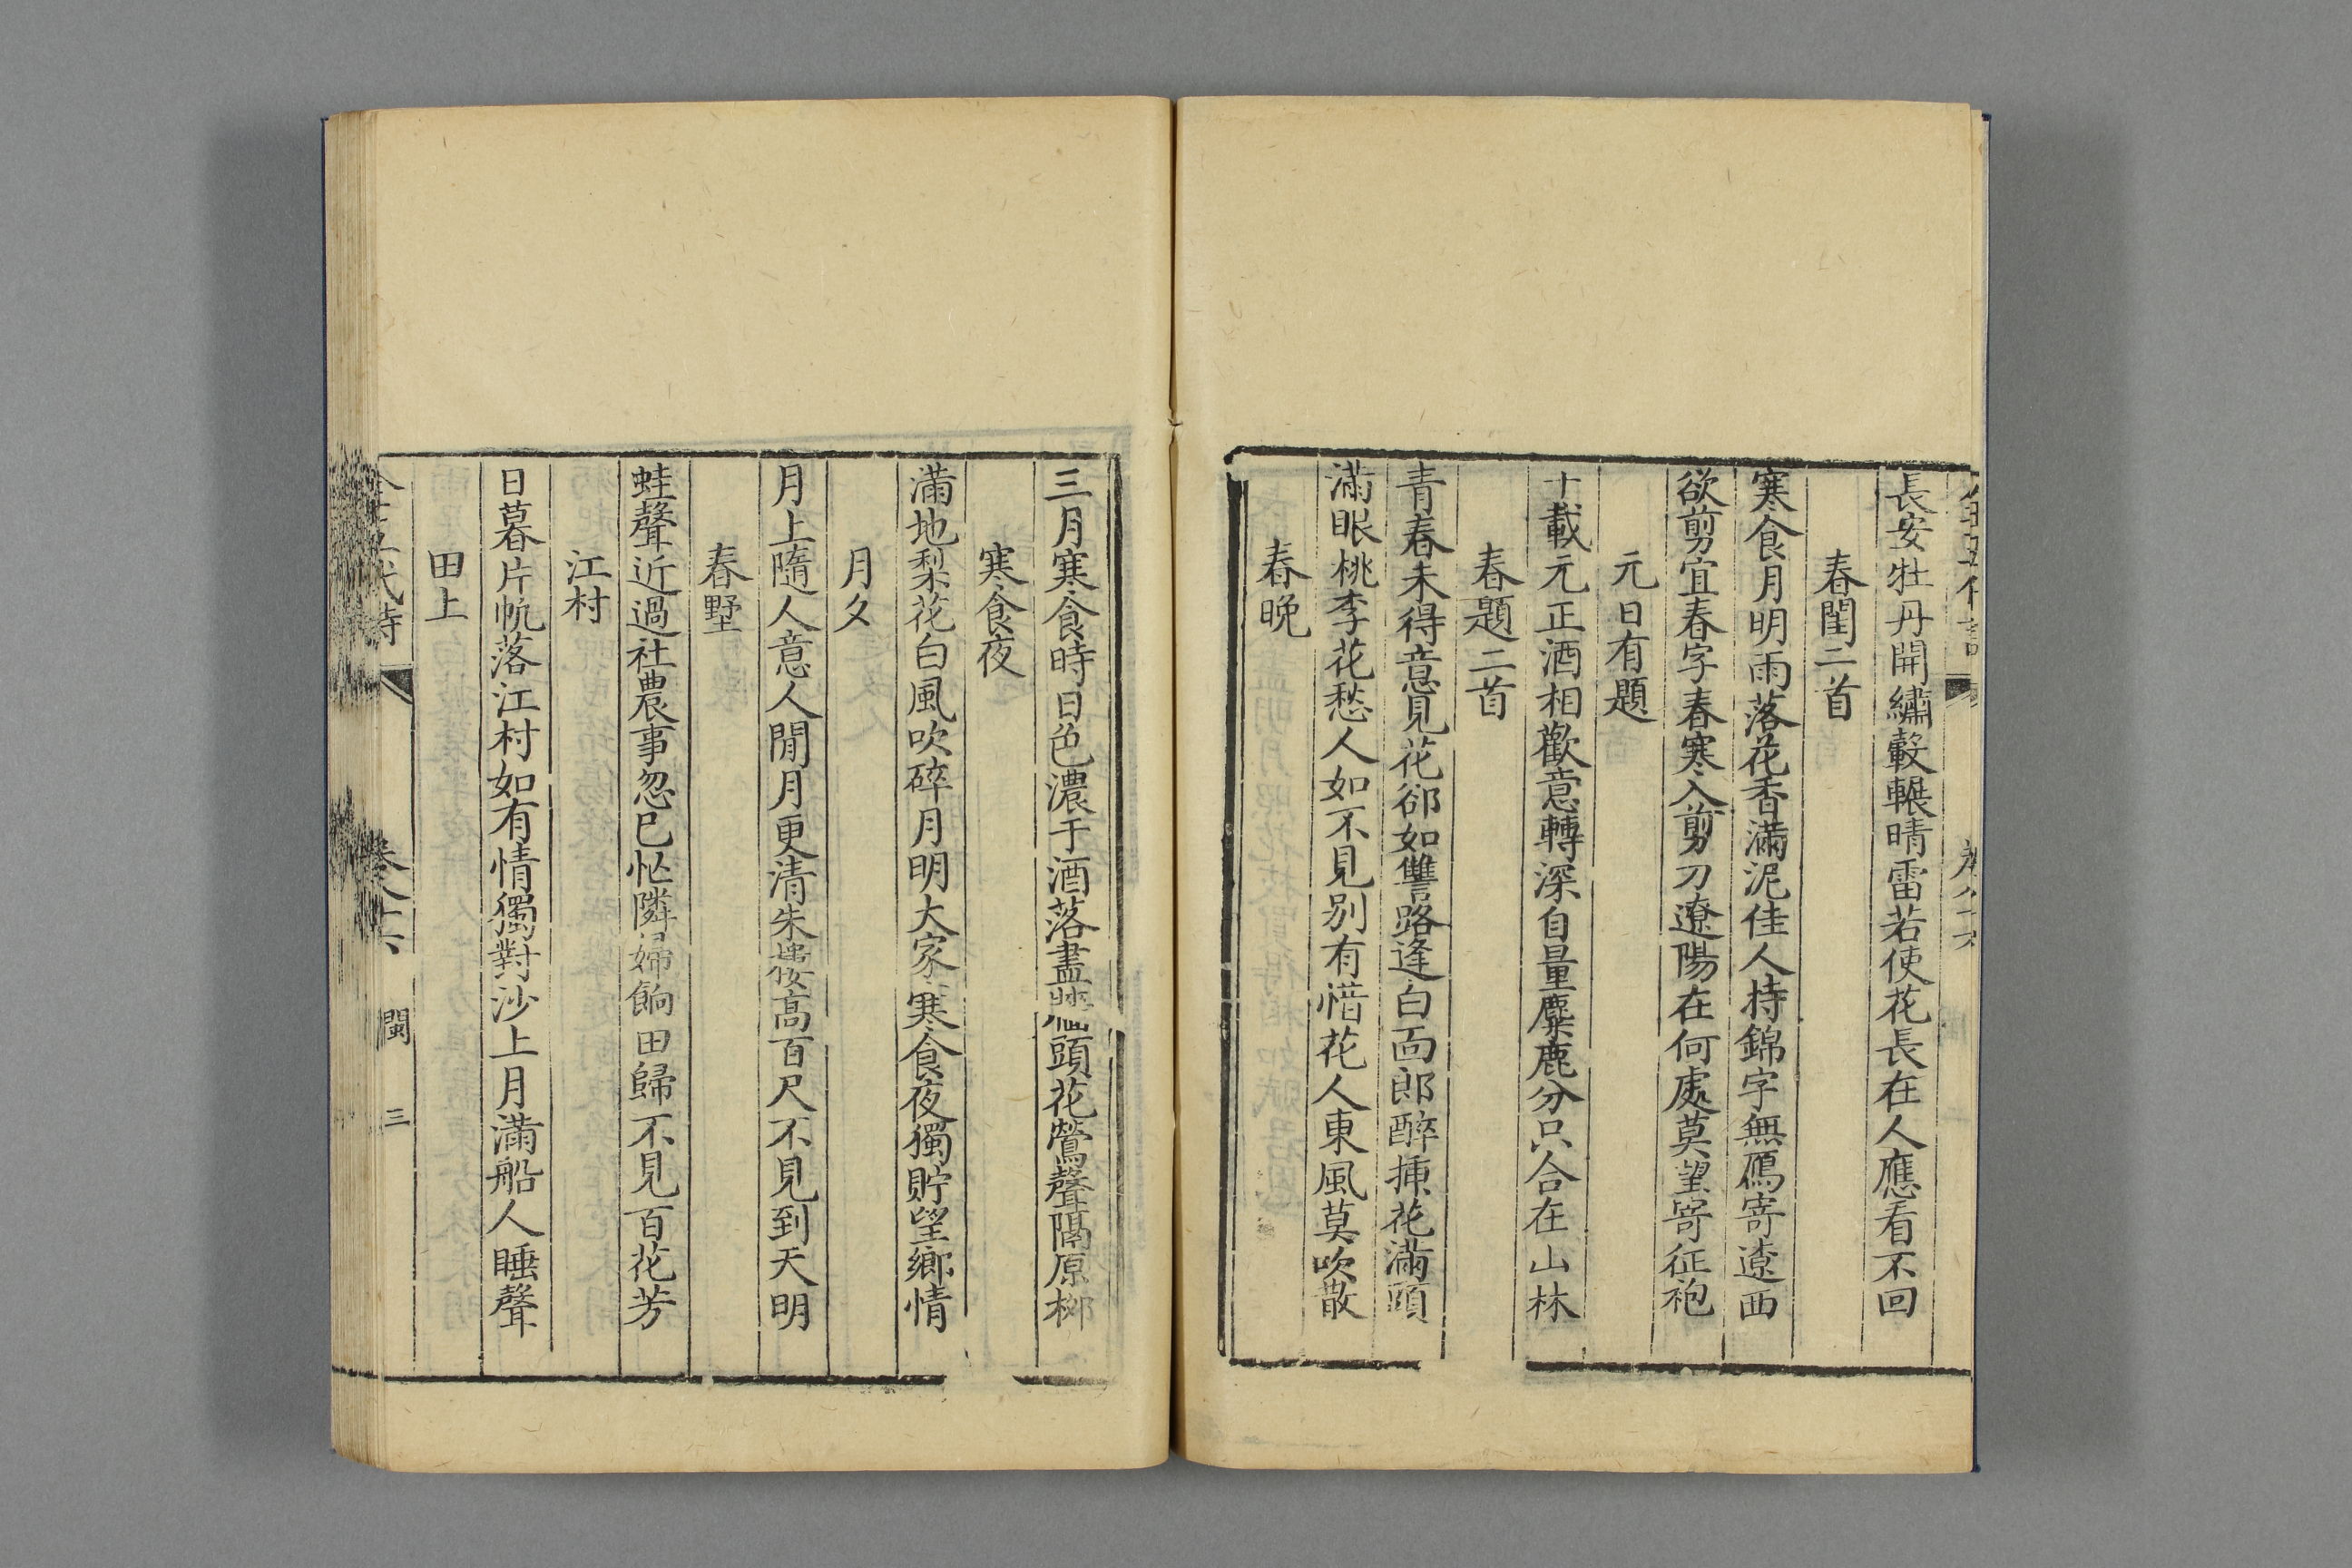 長安牡丹開繡轂輾晴雷若使花長在人應看不回
春閨二首
寒食月明雨落花香滿泥佳人持錦字無鴈寄遼西
欲剪宜春字春寒入剪刀遼陽在何處莫望寄征袍
元日有題
十載元正酒相歡意轉深自量麋鹿分只合在山林
春題二首
青春未得意見花郤如讐路逢白面郎醉揷花滿頭
滿眼桃李花愁人如不見別有惜花人東風莫吹散
春晚
三月寒食時日色濃于酒落盡墻頭花鶯聲隔原栁
寒食夜
滿地梨花白風吹碎月明大家寒食夜獨貯望鄉情
月夕
月上隨人意人閒月更清朱樓高百尺不見到天明
春墅
蛙聲近過社農事忽已忙隣婦餉田歸不見百花芳
江村
日暮片帆落江村如有情獨對沙上月滿船人睡聲
田上
全五代詩
卷八十六
閩
三